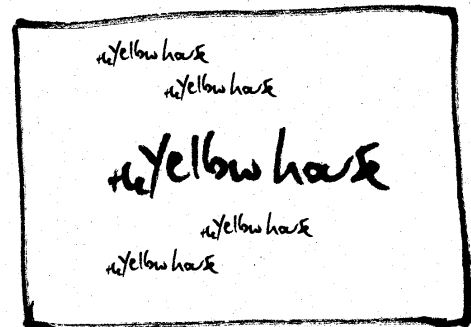 the Yellow house
the Yellow house
the Yellow house
the Yellow house
the Yellow house